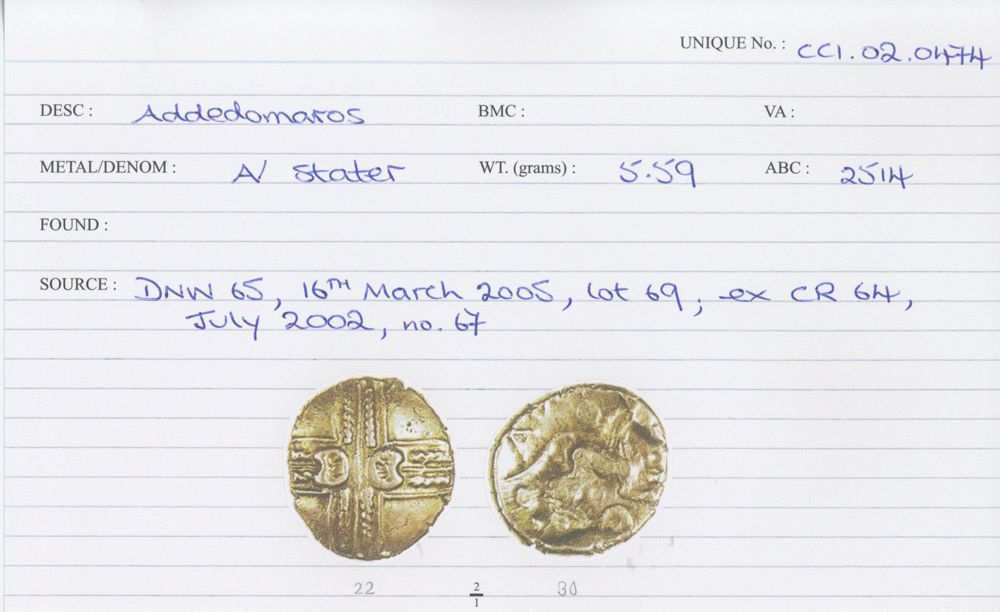 UNIQUE No. : CCI.02.0474
DESC : Addedomaros BMC : VA :
METAL/DENOM : A/ Stater WT. (grams) : 5.59 ABC : 2514
FOUND :
SOURCE : DNW 65, 16TH March 2005, lot 69, ex CR 64,
July 2002, no. 67
22 2/1 30